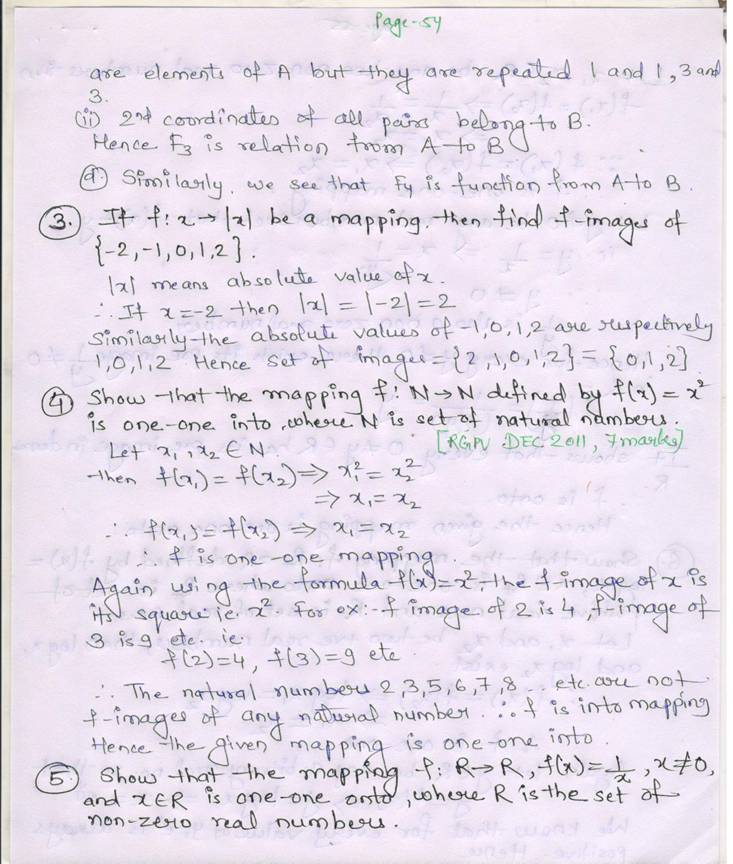 Page-54
are elements of A but they are repeated 1 and 1, 3 and
3.
(ii) 2nd coordinates of all pairs belong to B.
Hence F₃ is relation from A to B
(d) Similarly, we see that F₄ is function from A to B.
3. If f: x → |x| be a mapping, then find f-images of
{-2, -1, 0, 1, 2}.
|x| means absolute value of x.
∴ If x = -2 then |x| = |-2| = 2
Similarly the absolute values of -1, 0, 1, 2 are respectively
1, 0, 1, 2. Hence set of images = {2, 1, 0, 1, 2} = {0, 1, 2}
4 Show that the mapping f: N → N defined by f(x) = x²
is one-one into, where N is set of natural numbers.
[RGPV DEC 2011, 7 marks]
Let x₁, x₂ ∈ N
then f(x₁) = f(x₂) ⇒ x₁² = x₂²
⇒ x₁ = x₂
∴ f(x₁) = f(x₂) ⇒ x₁ = x₂
∴ f is one-one mapping.
Again using the formula f(x) = x², the f-image of x is
its square ie. x². For ex:- f image of 2 is 4, f-image of
3 is 9 etc. ie.
f(2) = 4, f(3) = 9 etc
∴ The natural numbers 2, 3, 5, 6, 7, 8 .. etc. are not
f-images of any natural number ∴ f is into mapping
Hence the given mapping is one-one into.
5. Show that the mapping f: R → R, f(x) = 1/x, x ≠ 0,
and x ∈ R is one-one onto, where R is the set of
non-zero real numbers.